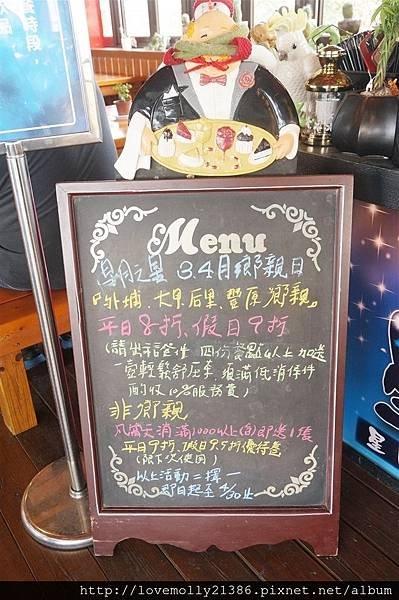 Menu
星月之星 3.4月鄉親日
『外埔、大甲、后里、豐原鄉親』
平日8折、假日9折
(請出示證件 四份餐點以上加送
一壺輕鬆舒壓茶 須滿低消條件
酌收10%服務費)
非鄉親
凡當天消滿1000以上(含)即送1張
平日9折、假日9.5折優待券
(限下次使用)
以上活動二擇一
即日起至4/30止
時段
星
http://lovemolly21386.pixnet.net/album